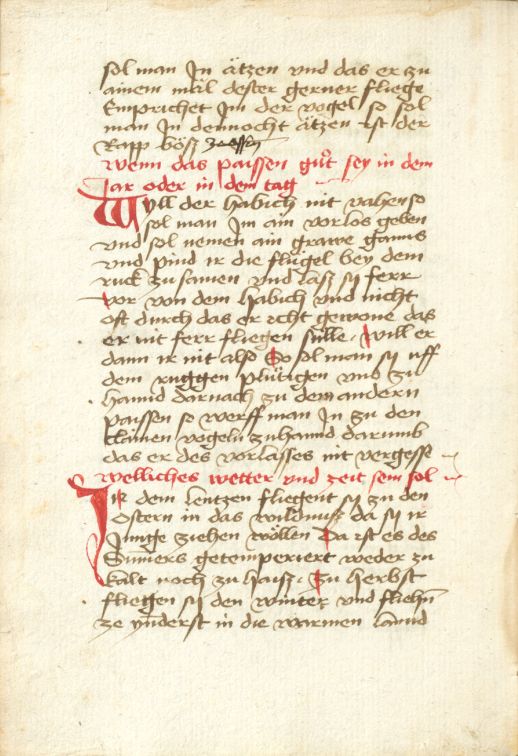 sol man Jn ätzen vnd das er zu
ainem mal dester gerner fliege
Emprichet Jm der vogel so sol
man Jn dennocht ätzen ist der
Rapp bösz zeessen
Wenn das paissen gůt sey in dem
Jar oder in dem tag
Wyll der habich nit vahen so
sol man Jm ain vorlos geben
vnd sol nemen ain grawe ganns
vnd pind ir die flügel bey dem
ruck zusamen vnd lasz sy ferr
vor von dem habich vnd nicht
oft durch das er icht gewone das
er nit ferr fliegen sülle, will er
dann ir nit also So sol man sy uff
dem ruggen plütigen vnd zu
hannd darnach zu dem andern
paissen so werff man Jn zu den
klainen vogeln zuhannd darumb
das er des vorlasses nit vergesse
Welliches wetter vnd zeit sein sol
Jn dem lentzen fliegent sy zu den
Ostern in das wildnusz da sy ir
Junge ziehen wöllen Da ist es des
Sumers getemperiert weder zu
kalt noch zu haisz, zu herbst
fliegen sy den winter vnd fliehn
ze ynderst in die warmen lannd